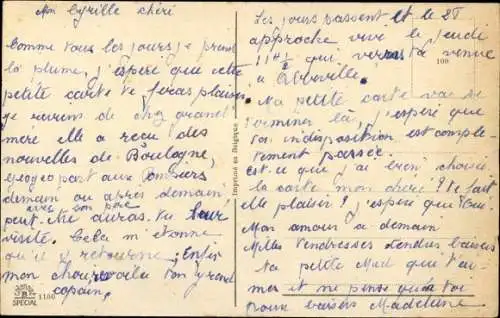 Mon Cyrille chéri
Comme tous les jours, je prend
la plume, j'espère que cette
petite carte te feras plaisir
je reviens de chez grand
mère elle a reçu des
nouvelles de Boulogne,
part aux
demain ou après demain
avec son père
peut-être auras-tu leur
visite. Cela m'étonne
qu'il y retourne; Enfin
mon chou, voilà ton grand
copain,
SPECIAL
1180
Imprimé en Belgique
Les jours passent et le 28
approche vive le jeudi
11h ½ qui verras ta venue
109
à
Ma petite carte vas se
terminer là, j'espère que
ton indisposition est complè
tement passée.
est-ce que j'ai bien choisi
la carte mon chéri? te fait
elle plaisir? j'espère que oui.
Mon amour à demain
Milles tendresses tendres baisers
ta petite Mad qui t'ai-
mes et ne pense qu'à toi
bons baisers Madelaine